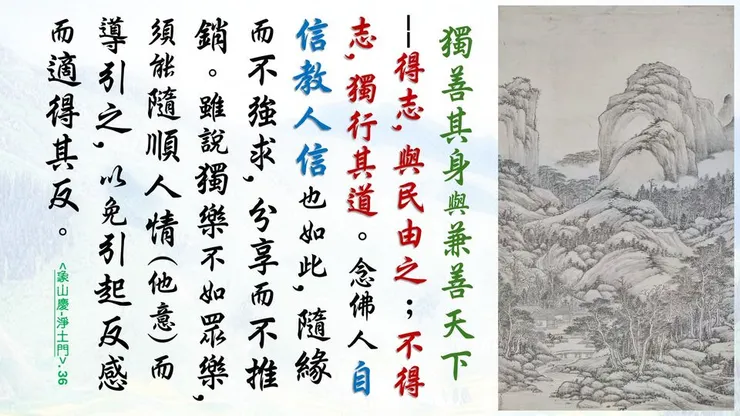 獨善其身與兼善天下
--得志,與民由之;不得
志,獨行其道。念佛人自
信教人信也如此,隨緣
而不強求,分享而不推
銷。雖說獨樂不如眾樂,
須能隨順人情(他意)而
導引之,以免引起反感
而適得其反。
<象山慶-淨土門>.36